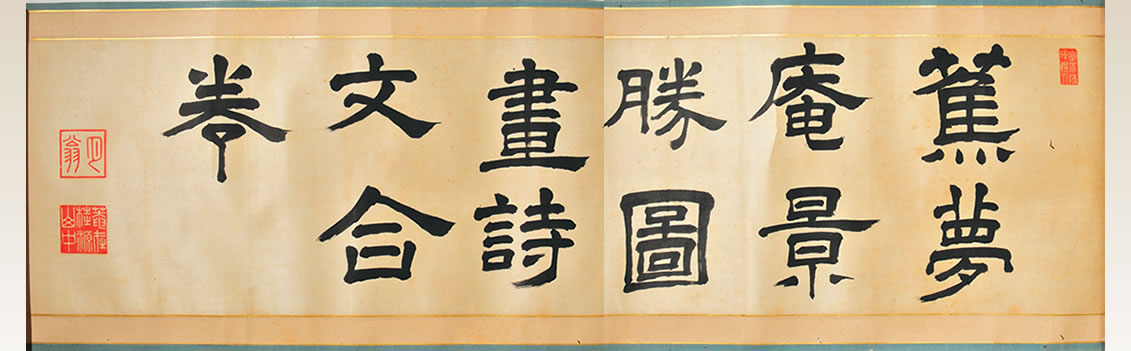 蕉夢
庵景
勝圖
畫詩
文合
卷